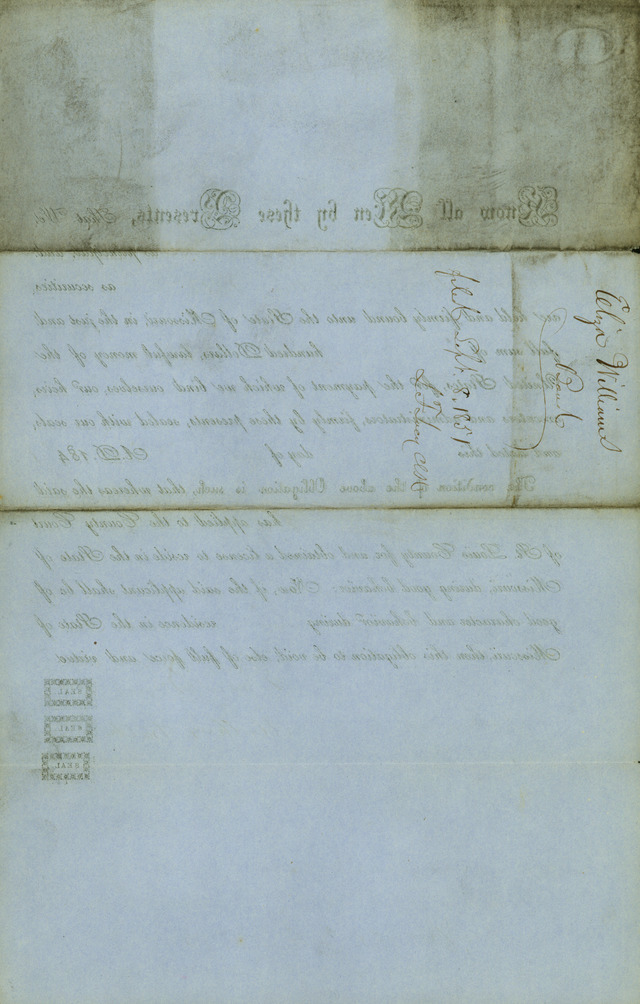 Williams
Bond
filed Sept
Know all Men by these Presents,
principal, and
as securities,
are held and firmly bound unto the State of Missouri, in the just and
full sum hundred Dollars, lawful money of the
United States, the payment of which we bind ourselves, our heirs,
executors and administrators, firmly by these presents, sealed with our seals,
and dated this day of A.D. 184
The condition of the above Obligation is such, that whereas the said
has applied to the County Court
of St. Louis County for, and obtained a license to reside in the State of
Missouri, during good behavior: Now, if the said applicant shall be of
good character and behavior during residence in the State of
Missouri, then this obligation to be void, else of full force and virtue
SEAL
SEAL
SEAL